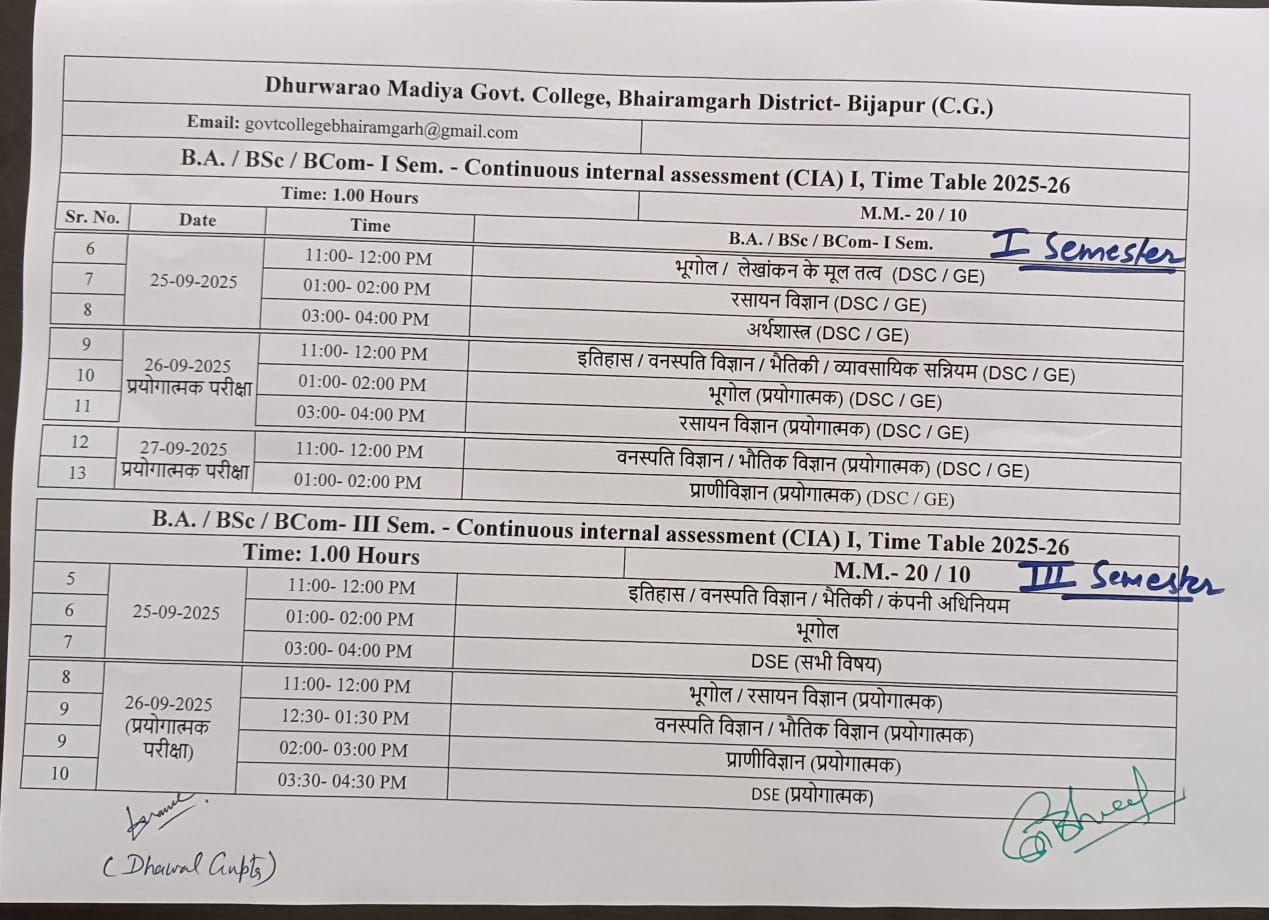 Dhurwarao Madiya Govt. College, Bhairamgarh District- Bijapur (C.G.)
Email: govtcollegebhairamgarh@gmail.com
B.A. / BSc / BCom- I Sem. - Continuous internal assessment (CIA) I, Time Table 2025-26
Time: 1.00 Hours M.M.- 20 / 10
Sr. No. Date Time B.A. / BSc / BCom- I Sem. I Semester
6 25-09-2025 11:00- 12:00 PM भूगोल / लेखांकन के मूल तत्व (DSC / GE)
7 01:00- 02:00 PM रसायन विज्ञान (DSC / GE)
8 03:00- 04:00 PM अर्थशास्त्र (DSC / GE)
9 26-09-2025 प्रयोगात्मक परीक्षा 11:00- 12:00 PM इतिहास / वनस्पति विज्ञान / भैतिकी / व्यावसायिक सन्नियम (DSC / GE)
10 01:00- 02:00 PM भूगोल (प्रयोगात्मक) (DSC / GE)
11 03:00- 04:00 PM रसायन विज्ञान (प्रयोगात्मक) (DSC / GE)
12 27-09-2025 प्रयोगात्मक परीक्षा 11:00- 12:00 PM वनस्पति विज्ञान / भौतिक विज्ञान (प्रयोगात्मक) (DSC / GE)
13 01:00- 02:00 PM प्राणीविज्ञान (प्रयोगात्मक) (DSC / GE)
B.A. / BSc / BCom- III Sem. - Continuous internal assessment (CIA) I, Time Table 2025-26
Time: 1.00 Hours M.M.- 20 / 10 III Semester
5 25-09-2025 11:00- 12:00 PM इतिहास / वनस्पति विज्ञान / भैतिकी / कंपनी अधिनियम
6 01:00- 02:00 PM भूगोल
7 03:00- 04:00 PM DSE (सभी विषय)
8 26-09-2025 (प्रयोगात्मक परीक्षा) 11:00- 12:00 PM भूगोल / रसायन विज्ञान (प्रयोगात्मक)
9 12:30- 01:30 PM वनस्पति विज्ञान / भौतिक विज्ञान (प्रयोगात्मक)
9 02:00- 03:00 PM प्राणीविज्ञान (प्रयोगात्मक)
10 03:30- 04:30 PM DSE (प्रयोगात्मक)
(Dhawal Gupta)